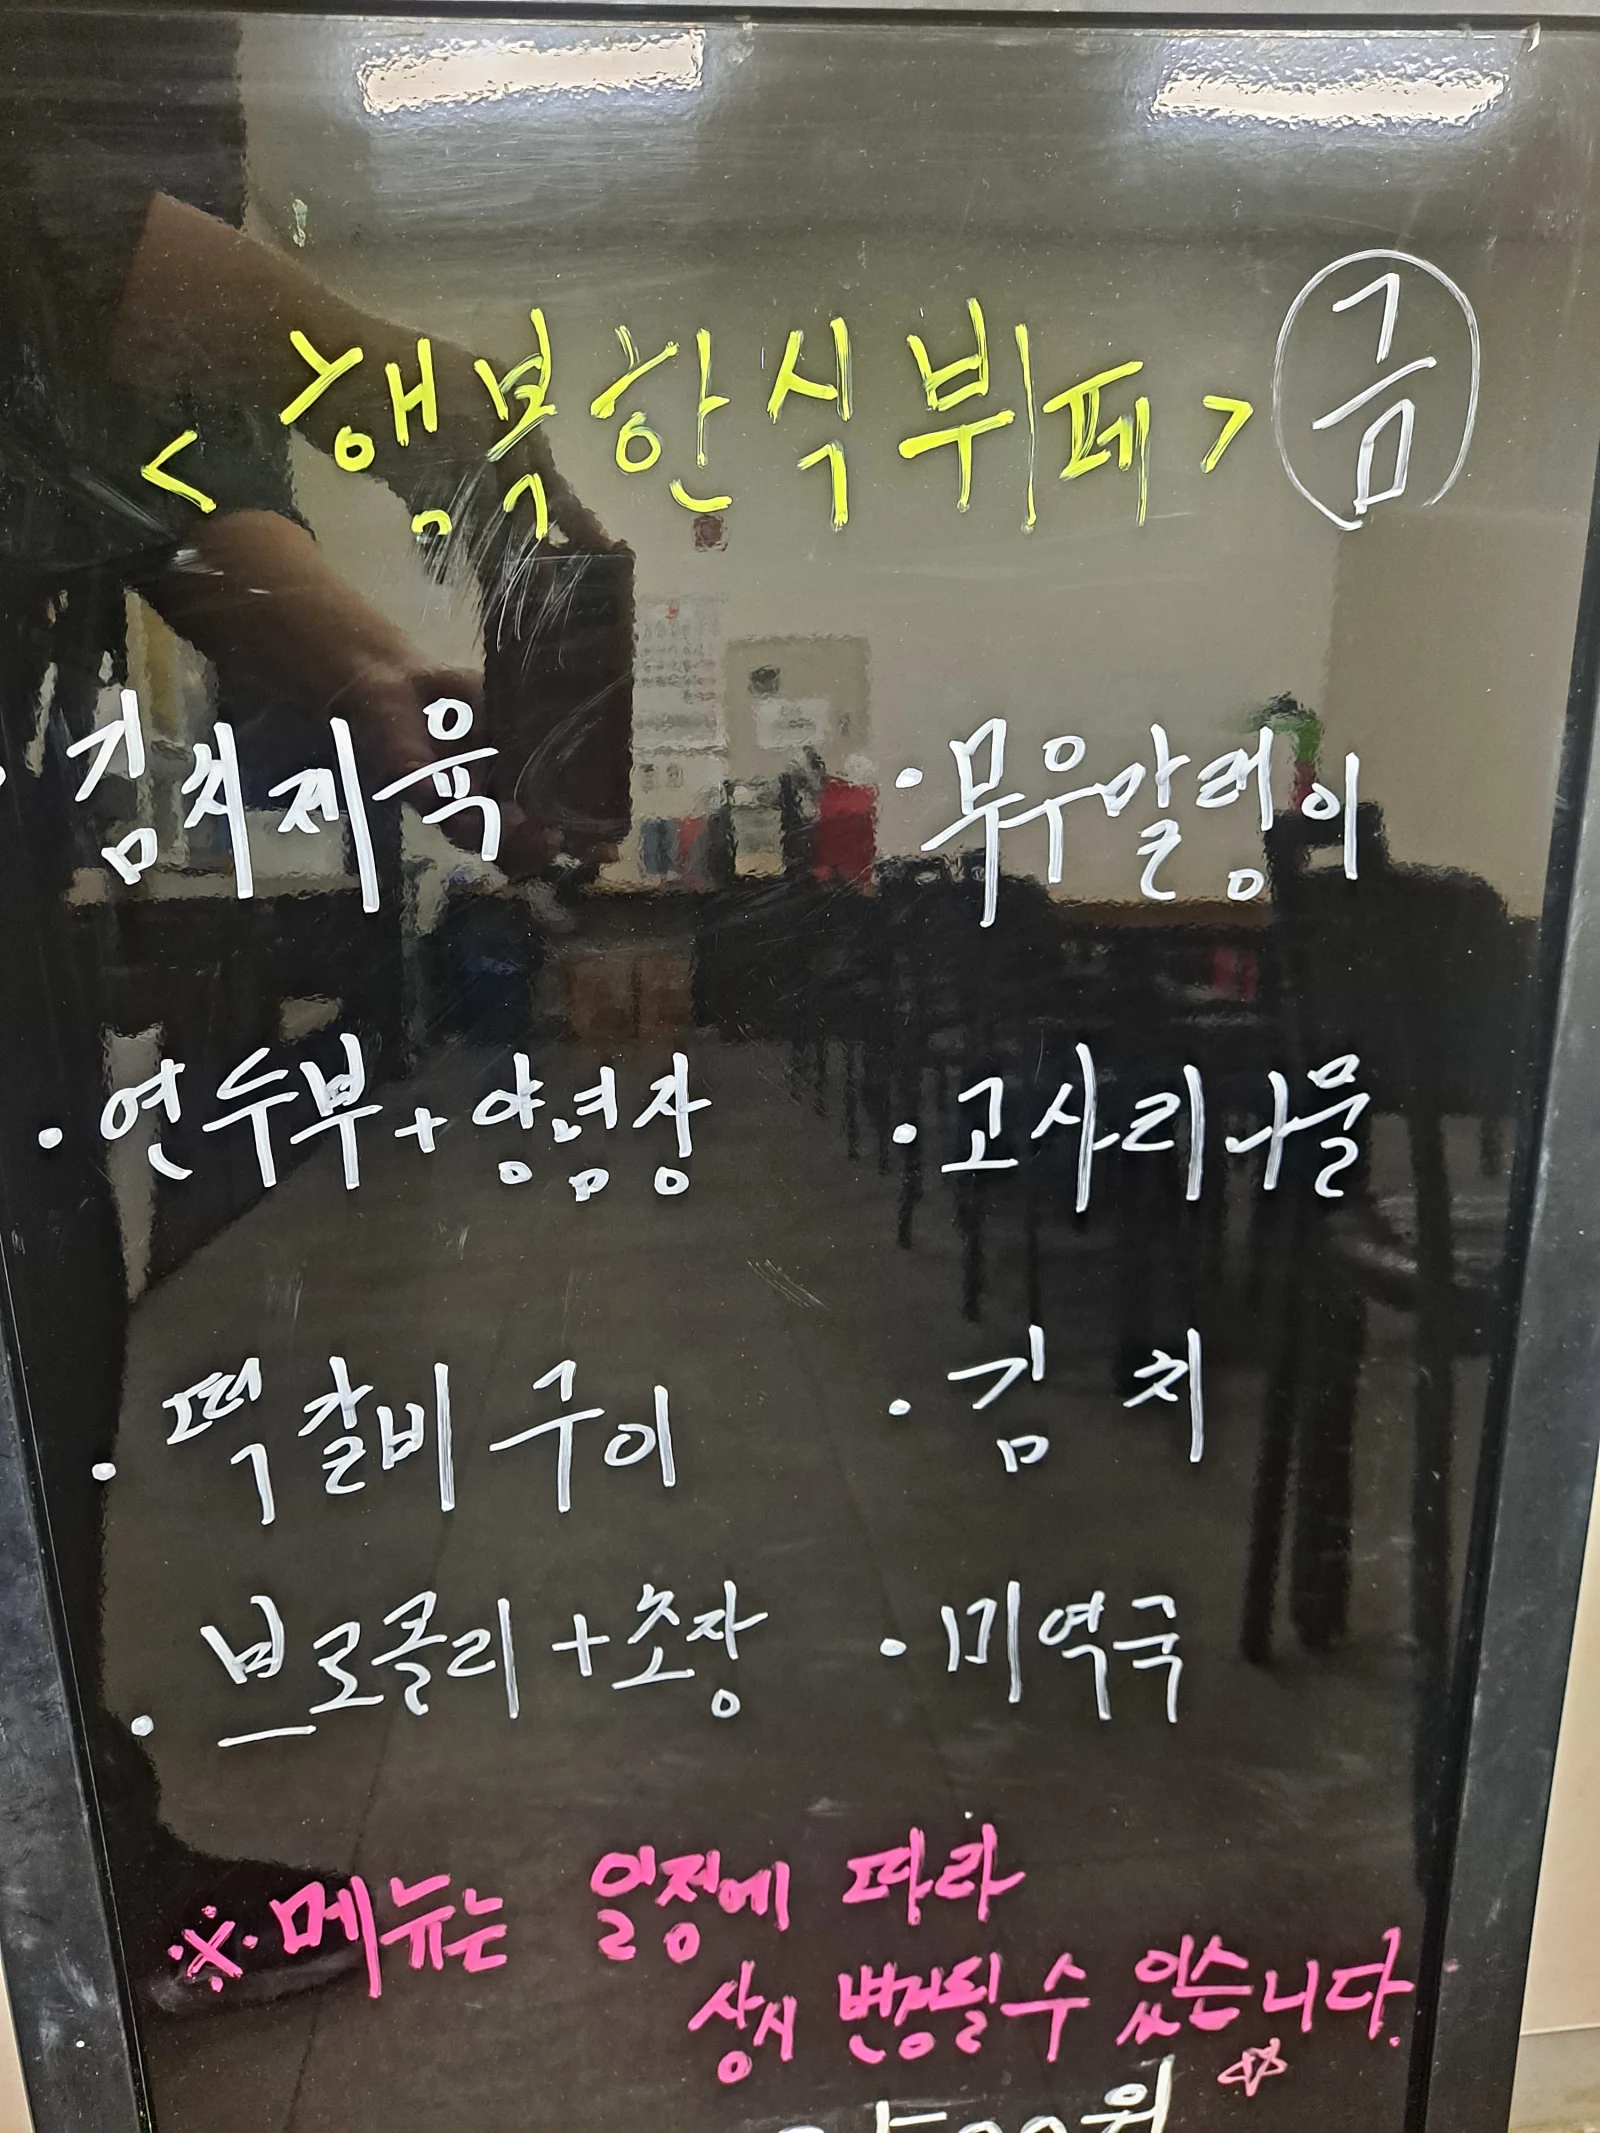 <행복한식뷔페> 금
· 김치제육
· 무우말랭이
· 연두부+양념장
· 고사리나물
· 떡갈비구이
· 김치
· 브로콜리+초장
· 미역국
※ 메뉴는 일정에 따라
상시 변경될 수 있습니다.